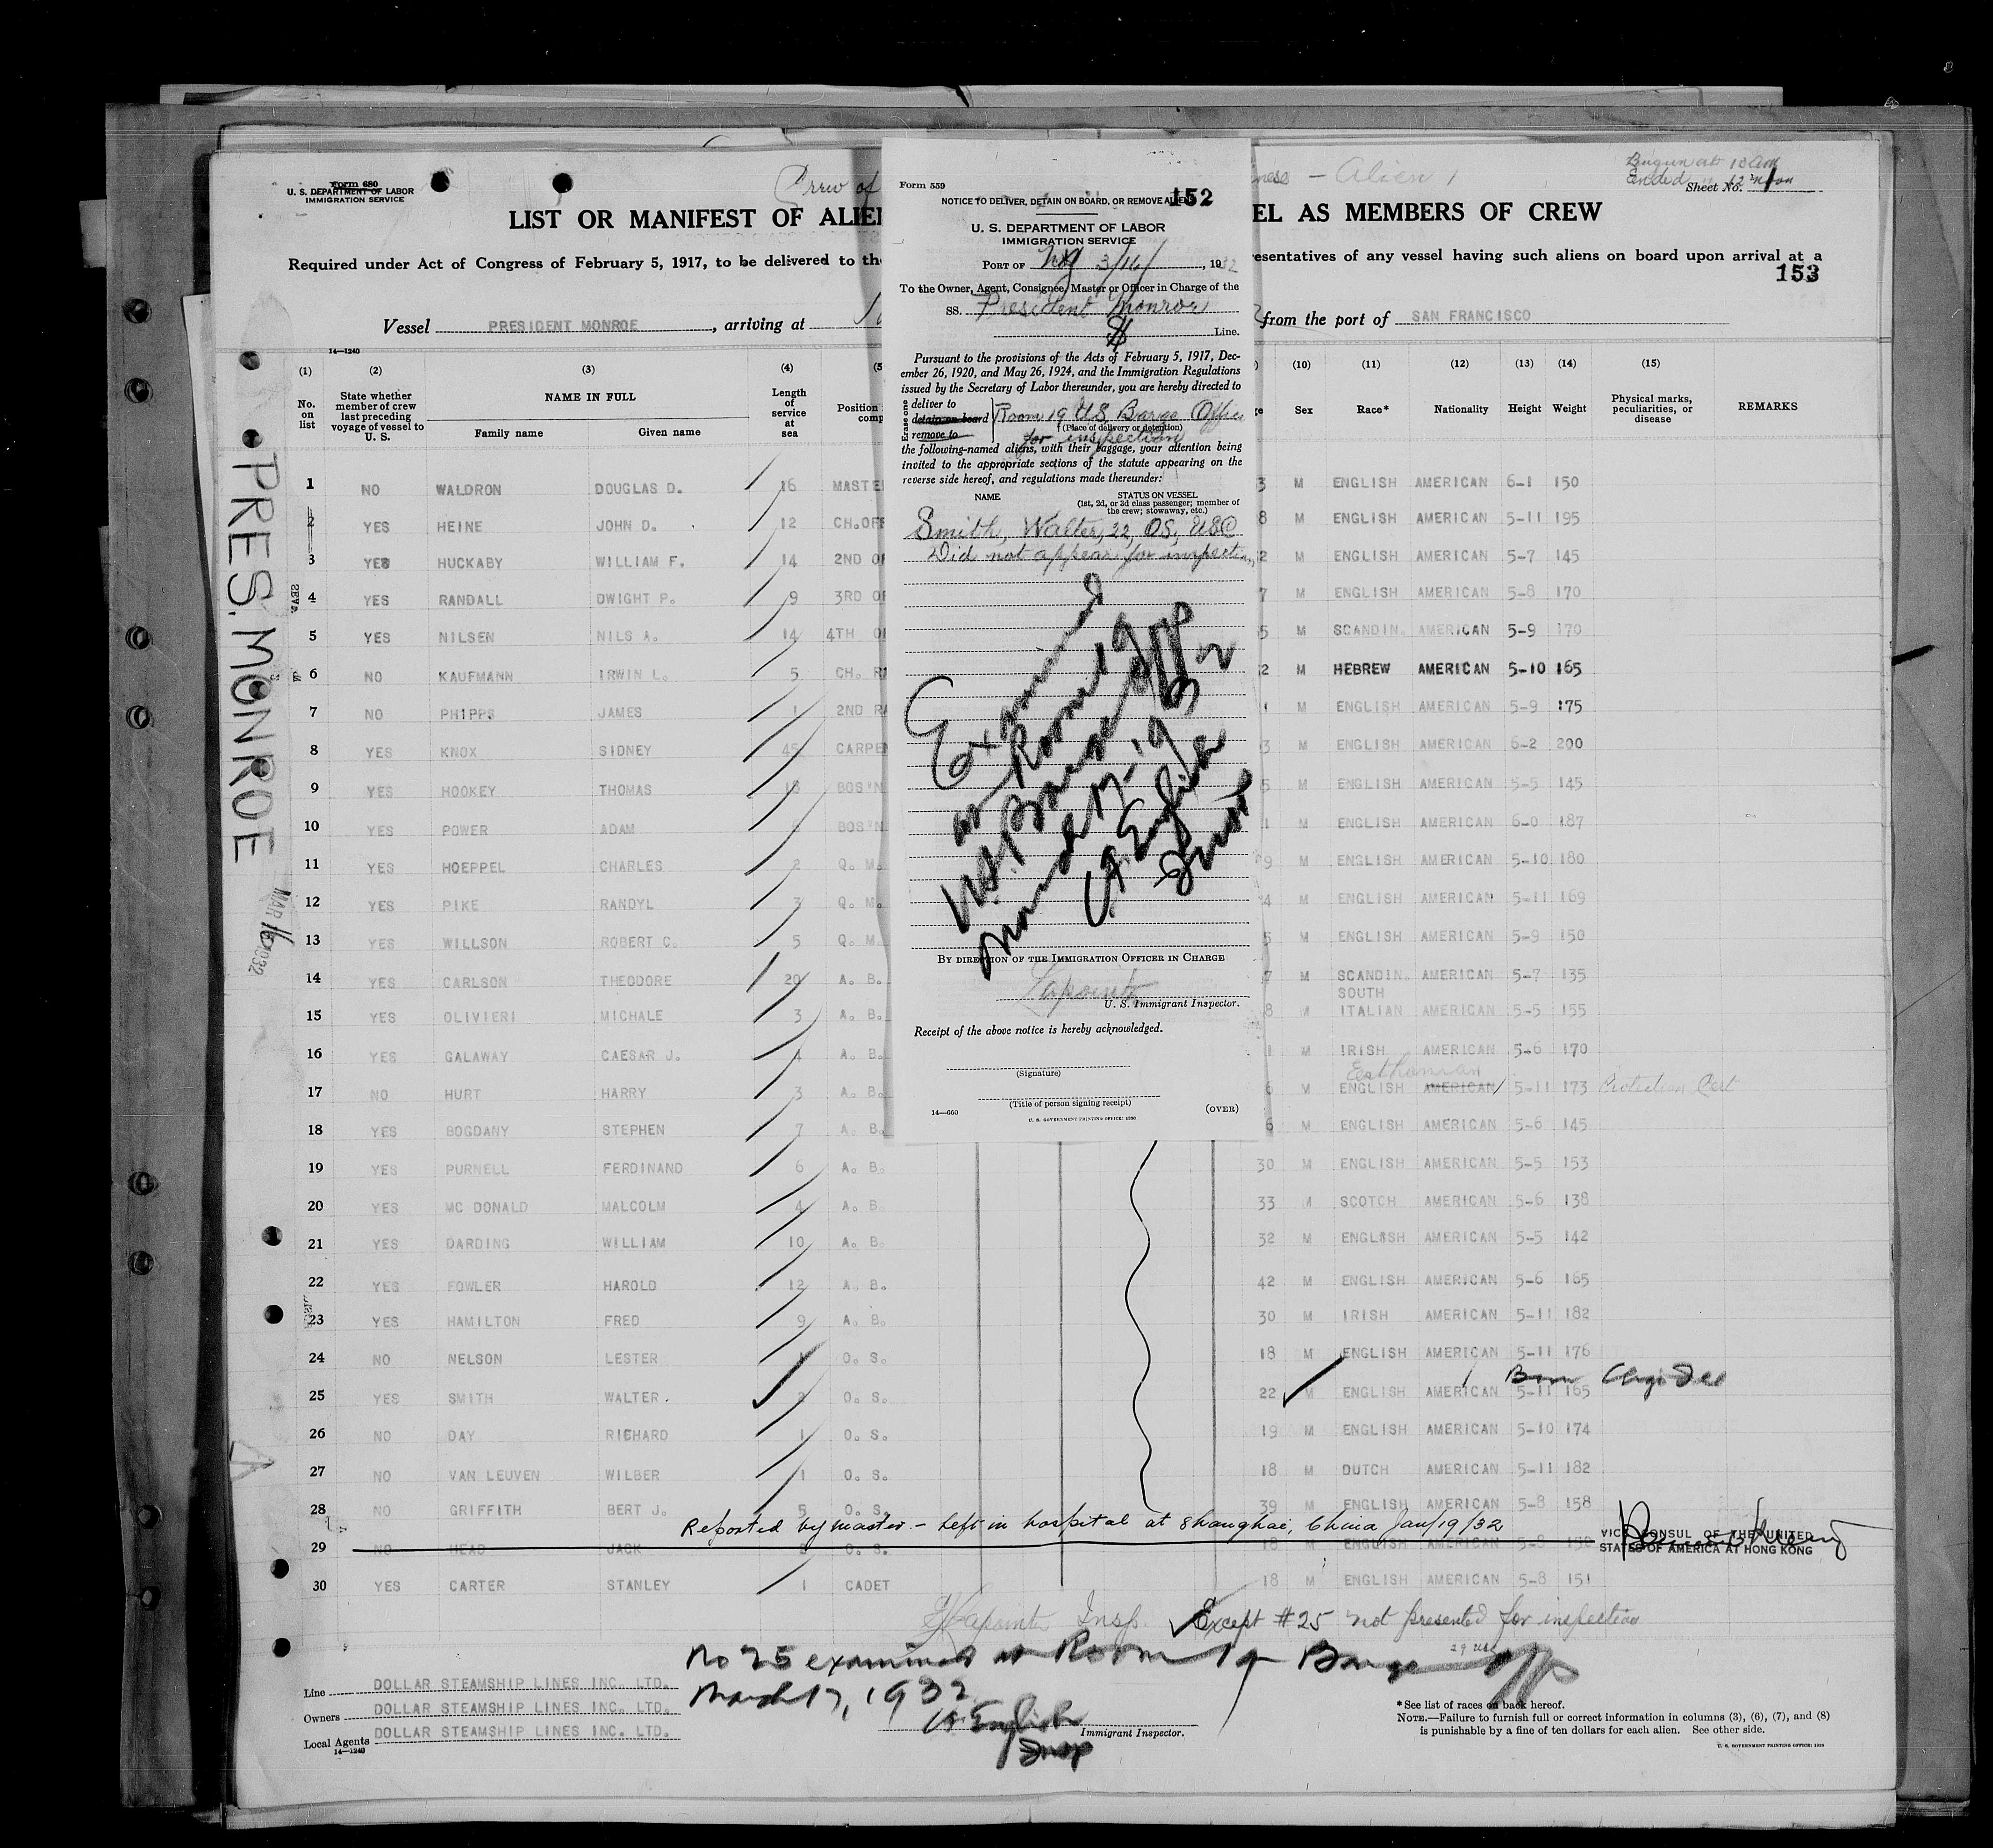 Form 680
U. S. DEPARTMENT OF LABOR
IMMIGRATION SERVICE
Crew of
ness - Alien 1
Begun at 10 am
Ended 12 noon
Sheet No. 1
LIST OR MANIFEST OF ALIE
EL AS MEMBERS OF CREW
Required under Act of Congress of February 5, 1917, to be delivered to th
esentatives of any vessel having such aliens on board upon arrival at a
153
Vessel PRESIDENT MONROE, arriving at
from the port of SAN FRANCISCO
14—1240
(1) (2) (3) (4) (5 (10) (11) (12) (13) (14) (15)
No. on list
State whether member of crew last preceding voyage of vessel to U. S.
NAME IN FULL
Family name Given name
Length of service at sea
Position comp
Sex Race* Nationality Height Weight
Physical marks, peculiarities, or disease
REMARKS
1 NO WALDRON DOUGLAS D. 16 MASTE 3 M ENGLISH AMERICAN 6-1 150
2 YES HEINE JOHN D. 12 CH.OFF 8 M ENGLISH AMERICAN 5-11 195
3 YES HUCKABY WILLIAM F. 14 2ND OF 2 M ENGLISH AMERICAN 5-7 145
4 YES RANDALL DWIGHT P. 9 3RD OF 7 M ENGLISH AMERICAN 5-8 170
5 YES NILSEN NILS A. 14 4TH OF 5 M SCANDIN. AMERICAN 5-9 170
6 NO KAUFMANN IRWIN L. 5 CH. RA 2 M HEBREW AMERICAN 5-10 165
7 NO PHIPPS JAMES 1 2ND RA 1 M ENGLISH AMERICAN 5-9 175
8 YES KNOX SIDNEY 45 CARPEN 3 M ENGLISH AMERICAN 6-2 200
9 YES HOOKEY THOMAS 18 BOS'N 5 M ENGLISH AMERICAN 5-5 145
10 YES POWER ADAM BOS'N 1 M ENGLISH AMERICAN 6-0 187
11 YES HOEPPEL CHARLES 2 Q. M. 9 M ENGLISH AMERICAN 5-10 180
12 YES PIKE RANDYL 3 Q. M. 4 M ENGLISH AMERICAN 5-11 169
13 YES WILLSON ROBERT C. 5 Q. M. 5 M ENGLISH AMERICAN 5-9 150
14 YES CARLSON THEODORE 20 A. B. 7 M SCANDIN. AMERICAN 5-7 135
15 YES OLIVIERI MICHALE 3 A. B. 8 M SOUTH ITALIAN AMERICAN 5-5 155
16 YES GALAWAY CAESAR J. 4 A. B. 1 M IRISH AMERICAN 5-6 170
Esthonian
17 NO HURT HARRY 3 A. B. 6 M ENGLISH AMERICAN 5-11 173 Protection Cert
18 YES BOGDANY STEPHEN 7 A. B. 6 M ENGLISH AMERICAN 5-6 145
19 YES PURNELL FERDINAND 6 A. B. 30 M ENGLISH AMERICAN 5-5 153
20 YES MC DONALD MALCOLM 4 A. B. 33 M SCOTCH AMERICAN 5-6 138
21 YES DARDING WILLIAM 10 A. B. 32 M ENGLSSH AMERICAN 5-5 142
22 YES FOWLER HAROLD 12 A. B. 42 M ENGLISH AMERICAN 5-6 165
23 YES HAMILTON FRED 9 A. B. 30 M IRISH AMERICAN 5-11 182
24 NO NELSON LESTER O. S. 18 M ENGLISH AMERICAN 5-11 176
Born
25 YES SMITH WALTER. 2 O. S. 22 M ENGLISH AMERICAN 5-11 165
26 NO DAY RICHARD 1 O. S. 19 M ENGLISH AMERICAN 5-10 174
27 NO VAN LEUVEN WILBER 1 O. S. 18 M DUTCH AMERICAN 5-11 182
28 NO GRIFFITH BERT J. 5 O. S. 39 M ENGLISH AMERICAN 5-8 158
Reported by master - left in hospital at Shanghai, China Jan/19/32
VICE CONSUL OF THE UNITED
STATES OF AMERICA AT HONG KONG
29 NO HEAD JACK O. S. 18 M ENGLISH AMERICAN 5-8 150
30 YES CARTER STANLEY 1 CADET 18 M ENGLISH AMERICAN 5-8 151
Lapointe Insp. Except #25 not presented for inspection
No 25 examined at Room 19 Barge Off
March 17, 1932
English
Insp
Immigrant Inspector.
Line DOLLAR STEAMSHIP LINES INC. LTD.
Owners DOLLAR STEAMSHIP LINES INC. LTD.
Local Agents DOLLAR STEAMSHIP LINES INC. LTD.
14—1240
*See list of races on back hereof.
NOTE.—Failure to furnish full or correct information in columns (3), (6), (7), and (8)
is punishable by a fine of ten dollars for each alien. See other side.
U. S. GOVERNMENT PRINTING OFFICE: 1929
PRES. MONROE
MAR 16 1932
Form 559
152
NOTICE TO DELIVER, DETAIN ON BOARD, OR REMOVE ALIENS
U. S. DEPARTMENT OF LABOR
IMMIGRATION SERVICE
PORT OF NY 3/16/, 1932
To the Owner, Agent, Consignee, Master or Officer in Charge of the
SS. President Monroe
Line.
Pursuant to the provisions of the Acts of February 5, 1917, Dec-
ember 26, 1920, and May 26, 1924, and the Immigration Regulations
issued by the Secretary of Labor thereunder, you are hereby directed to
Erase one
deliver to
detain on board
remove to
Room 19 US Barge Office
(Place of delivery or detention)
for inspection
the following-named aliens, with their baggage, your attention being
invited to the appropriate sections of the statute appearing on the
reverse side hereof, and regulations made thereunder:
NAME
STATUS ON VESSEL
(1st, 2d, or 3d class passenger; member of
the crew; stowaway, etc.)
Smith, Walter, 22, OS, USC
Did not appear for inspection
Examined
at Room 19
U.S. Barge Off
March 17-1932
English
Insp
BY DIRECTION OF THE IMMIGRATION OFFICER IN CHARGE
Lapointe
U. S. Immigrant Inspector.
Receipt of the above notice is hereby acknowledged.
(Signature)
(Title of person signing receipt)
14—660
U. S. GOVERNMENT PRINTING OFFICE: 1930
(OVER)